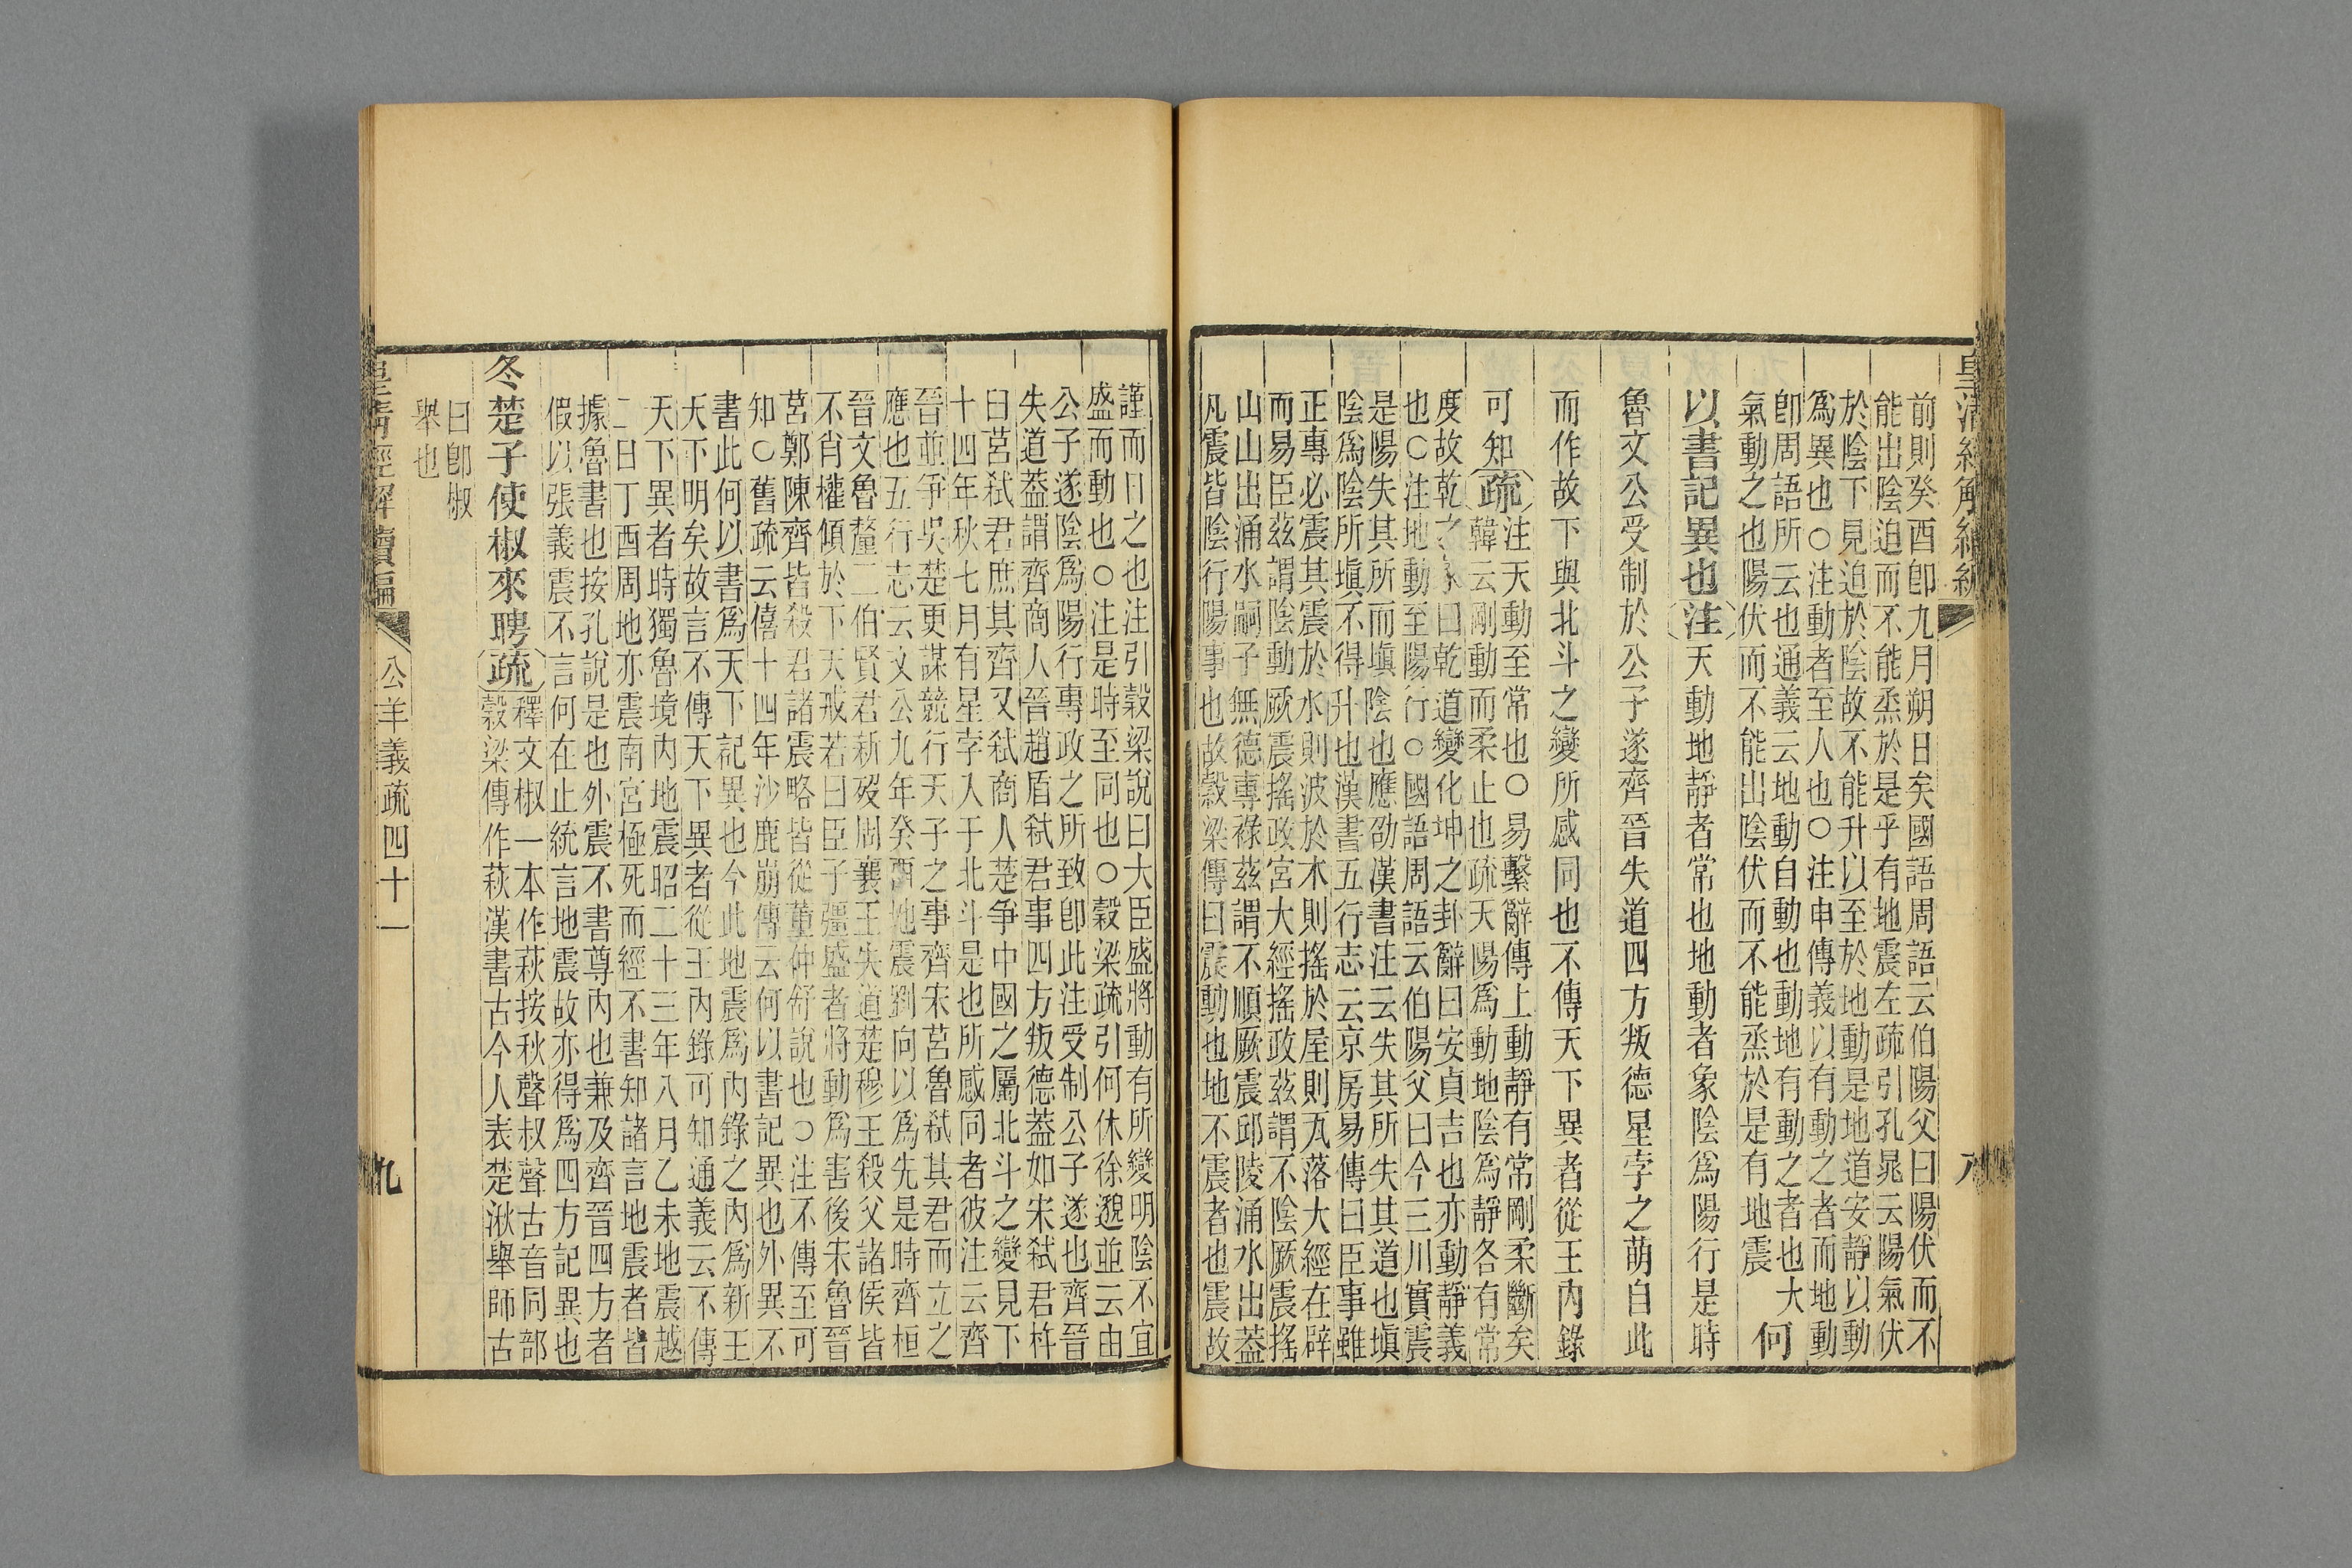 皇清經解續編
八
前則癸酉卽九月朔日矣國語周語云伯陽父曰陽伏而不
能出陰迫而不能烝於是乎有地震左疏引孔晁云陽氣伏
於陰下見迫於陰故不能升以至於地動是地道安靜以動
爲異也○注動者至人也○注申傳義以有動之者而地動
卽周語所云也通義云地動自動也動地有動之者也大
氣動之也陽伏而不能出陰伏而不能烝於是有地震
何
以書記異也注天動地靜者常也地動者象陰爲陽行是時
魯文公受制於公子遂齊晉失道四方叛德星孛之萌自此
而作故下與北斗之變所感同也不傳天下異者從王內錄
可知疏注天動至常也○易繫辭傳上動靜有常剛柔斷矣
韓云剛動而柔止也疏天陽爲動地陰爲靜各有常
度故乾之彖曰乾道變化坤之卦辭曰安貞吉也亦動靜義
也○注地動至陽行○國語周語云伯陽父曰今三川實震
是陽失其所而塡陰也應劭漢書注云失其所失其道也塡
陰爲陰所塡不得升也漢書五行志云京房易傳曰臣事雖
正專必震其震於水則波於木則搖於屋則瓦落大經在辟
而易臣茲謂陰動厥震搖政宮大經搖政茲謂不陰厥震搖
山山出涌水嗣子無德專祿茲謂不順厥震邱陵涌水出蓋
凡震皆陰行陽事也故穀梁傳曰震動也地不震者也震故
謹而日之也注引穀梁說曰大臣盛將動有所變明陰不宜
盛而動也○注是時至同也○穀梁疏引何休徐邈並云由
公子遂陰爲陽行專政之所致卽此注受制公子遂也齊晉
失道蓋謂齊商人晉趙盾弒君事四方叛德蓋如宋弒君杵
臼莒弒君庶其齊又弒商人楚爭中國之屬北斗之變見下
十四年秋七月有星孛入于北斗是也所感同者彼注云齊
晉並爭吳楚更謀競行天子之事齊宋莒魯弒其君而立之
應也五行志云文公九年癸酉地震劉向以爲先是時齊桓
晉文魯釐二伯賢君新歿周襄王失道楚穆王殺父諸侯皆
不肖權傾於下天戒若曰臣子彊盛者將動爲害後宋魯晉
莒鄭陳齊皆殺君諸震略皆從董仲舒說也○注不傳至可
知○舊疏云僖十四年沙鹿崩傳云何以書記異也外異不
書此何以書爲天下記異也今此地震爲內錄之內爲新王
天下明矣故言不傳天下異者從王內錄可知通義云不傳
天下異者時獨魯境內地震昭二十三年八月乙未地震越
二日丁酉周地亦震南宮極死而經不書知諸言地震者皆
據魯書也按孔說是也外震不書尊內也兼及齊晉四方者
假以張義震不言何在止統言地震故亦得爲四方記異也
冬楚子使椒來聘疏釋文椒一本作萩按秋聲叔聲古音同部
穀梁傳作萩漢書古今人表楚湫舉師古
曰卽椒
舉也
皇清經解續編
公羊義疏四十一
九